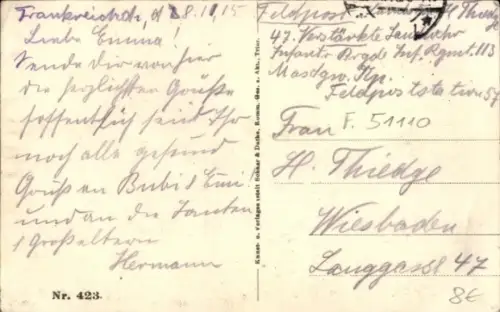 Frankreich d. 28.11.15
Liebe Emma!
Sende Dir von hier
die herzlichsten Grüße
hoffentlich seid Ihr
noch alle gesund
Gruß an Bubi &
und an die Tanten
& Großeltern
Hermann
Nr. 423.
Kunst- u. Verlagsanstalt Schaar & Dathe, Komm.-Ges. a. Akt., Trier.
Feldpost H Thiedge
47. Verstärkte Landwehr
Infantr Brgde Inf. Rgmt. 113
Masdgw. Kp.
Feldpoststation 57
Frau F. 51110
H. Thiedge
Wiesbaden
Langgasse 47
8€